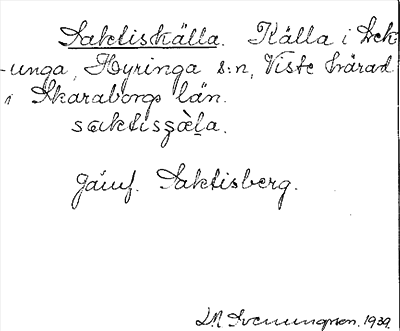 Saktiskälla. Källa i Sek-
-unga, Hyringa s:n, Viste härad
i Skaraborgs län.
saktisʒàḷa.
Jämf. Saktisberg.
1939.